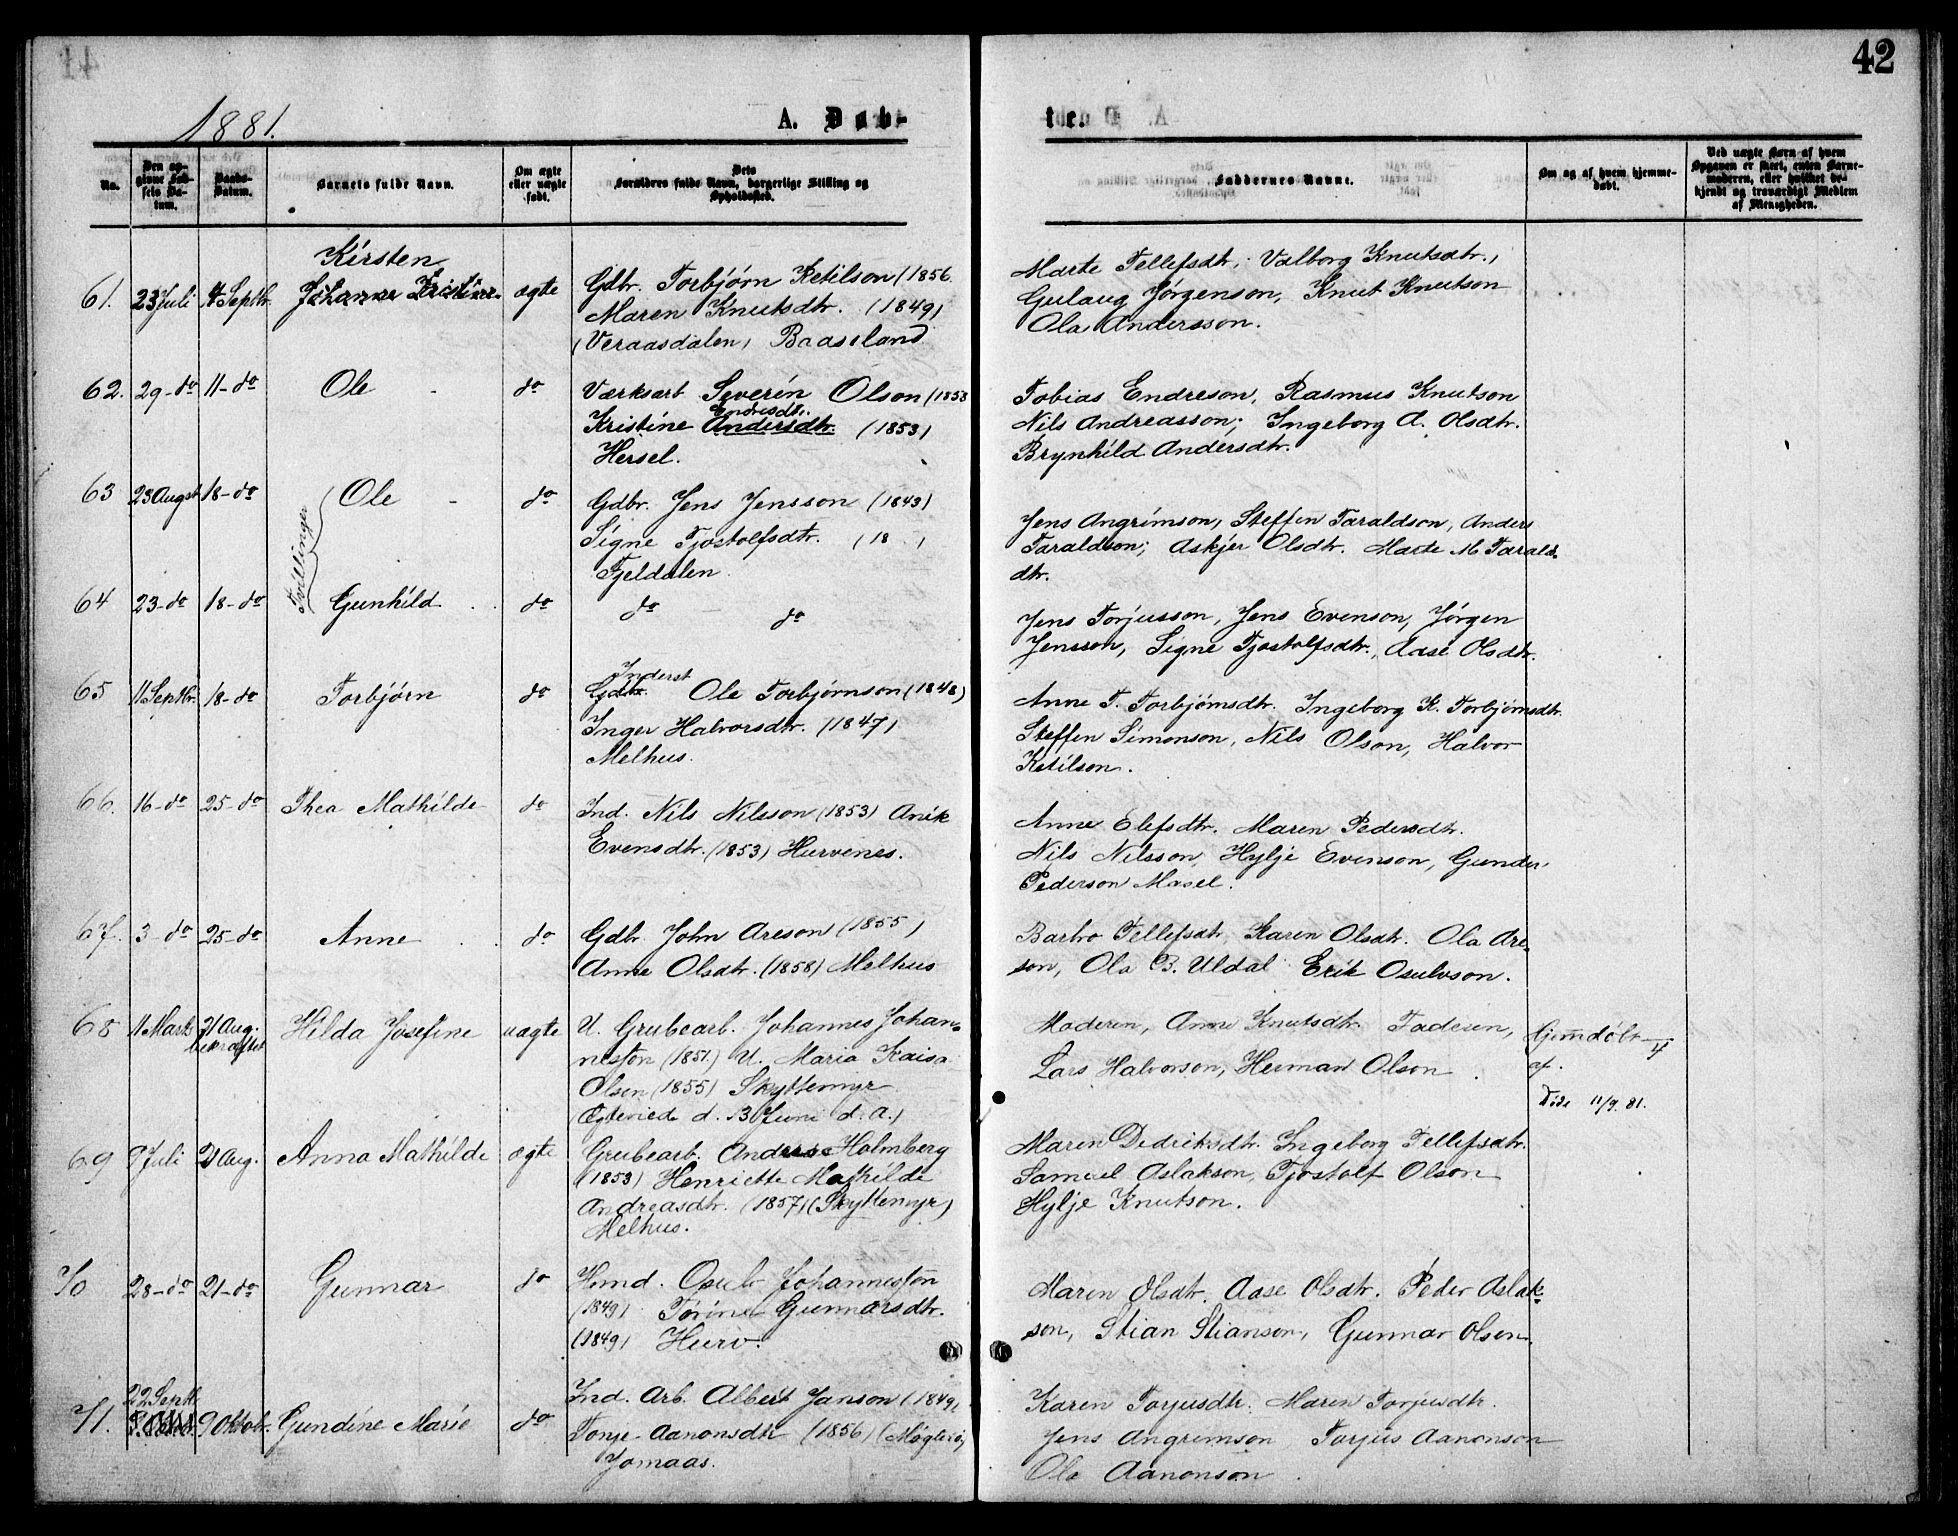 42
1881.
A. Døb-
te.
No.
Den opgivne Fødsels Datum.
Daabs-Datum.
Barnets fulde Navn.
Om ægte eller uægte født.
Dets Forældres fulde Navn, borgerlige Stilling og Opholdssted.
Faddernes Navne.
Om og af hvem hjemmedøbt.
Ved uægte Børn af hvem Opgaven er skeet, enten Barnemoderen, eller hvilket bekjendt og troværdigt Medlem af Menigheden.
Kirsten
61. 23 Juli 4 Septbr. Johanne Kristine ægte Gdbr. Torbjørn Ketilson (1856
Maren Knutsdtr. (1849)
(Veraasdalen) Baaseland
Marte Tellefsdtr; Valborg Knutsdtr.,
Gulaug Jørgenson, Knut Knutson
Ola Andersson.
62. 29-do 11-do Ole do Værksarb Severin Olson (1858
Endresdtr.
Kristine Andersdtr. (1853)
Hersel.
Tobias Endreson, Rasmus Knutson
Nils Andreasson; Ingeborg A. Olsdtr.
Brynhild Andersdtr.
63 23 Augst 18-do Ole do Gdbr. Jens Jensson (1843)
Signe Tjostolfsdtr. (18 )
Fjeldalen
Tvillinger
Jens Angrimson, Steffen Taraldson, Anders
Taraldson; Askjer Olsdtr. Marte M Tarals
dtr.
64 23-do 18-do Gunhild do do do
Jens Torjusson, Jens Evenson, Jørgen
Jensson, Signe Tjostolfsdtr., Aase Olsdtr.
Inderst
65 11 Septbr. 18-do Torbjørn do Gdbr. Ole Torbjørnson (1848)
Inger Halvorsdtr. (1847)
Melhus.
Anne T. Torbjørnsdtr. Ingeborg K. Torbjørnsdtr.
Steffen Simonson, Nils Olson, Halvor
Ketilson.
66. 16-do 25-do Thea Mathilde do Ind. Nils Nilsson (1853) Anik
Evensdtr. (1853) Hurvenes.
Anne Elefsdtr. Maren Pedersdtr.
Nils Nilsson, Hylje Evenson, Gunder
Pederson Masel.
67. 3-do 25-do Anne do Gdbr. John Areson (1855)
Anne Olsdtr. (1858) Melhus
Barbo Tellefsdtr, Karen Olsdtr. Ola Are
son, Ola B. Uldal Erik Osulvson.
68 11 Marts 21 Aug. bekræftet Hilda Josefine uægte U. Grubearb. Johannes Johan-
nesson (1851.) U. Maria Kaisa
Olsen (1855) Skyttemyr
(Egteviede d. 13 Juni d. a.)
Moderen, Anne Knutsdtr. Faderen,
Lars Halvorson, Herman Olson
Hjemdøbt
af.
Døde 11/9. 81.
69 9 Juli 21 Aug. Anna Mathilde ægte Grubearb. Anders Holmberg
(1853) Henriette Mathilde
Andreasdtr. (1857) (Skyttemyr)
Melhus.
Maren Didriksdtr. Ingeborg Tellefsdtr.
Samuel Aslakson, Tjostolf Olson
Hylje Knutson.
70 28-do 21-do Gunnar do Hmd. Osulv Johannesson
(1849) Torine Gunnarsdtr.
(1849) Hurv.
Maren Olsdtr. Aase Olsdtr. Peder Aslak-
son, Stian Stianson, Gunnar Olsen.
22 Septb.
71. 9 Oktobr. Gundine Marie do Ind. Arb. Albert Janson (1849)
Tonje Aanonsdtr (1856)
Jomaas.
Karen Torjusdtr. Maren Torjusdtr.
Jens Angrimson Torjus Aanonson
Ola Aanonson